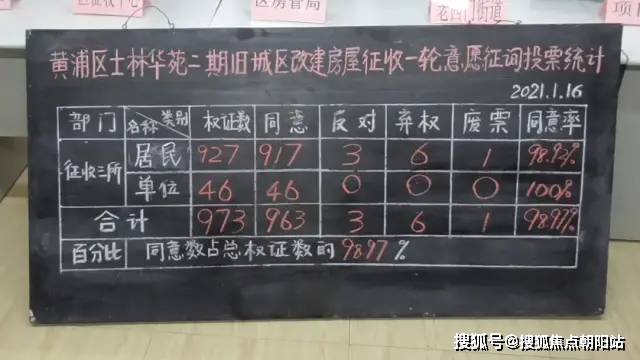 区房管局
老西门街道
黄浦区士林华苑二期旧城区改建房屋征收一轮意愿征询投票统计
2021.1.16
部门 名称 类别 权证数 同意 反对 弃权 废票 同意率
征收三所 居民 927 917 3 6 1 98.92%
单位 46 46 0 0 0 100%
合计 973 963 3 6 1 98.97%
百分比 同意数占总权证数的98.97%
搜狐号@搜狐焦点朝阳站